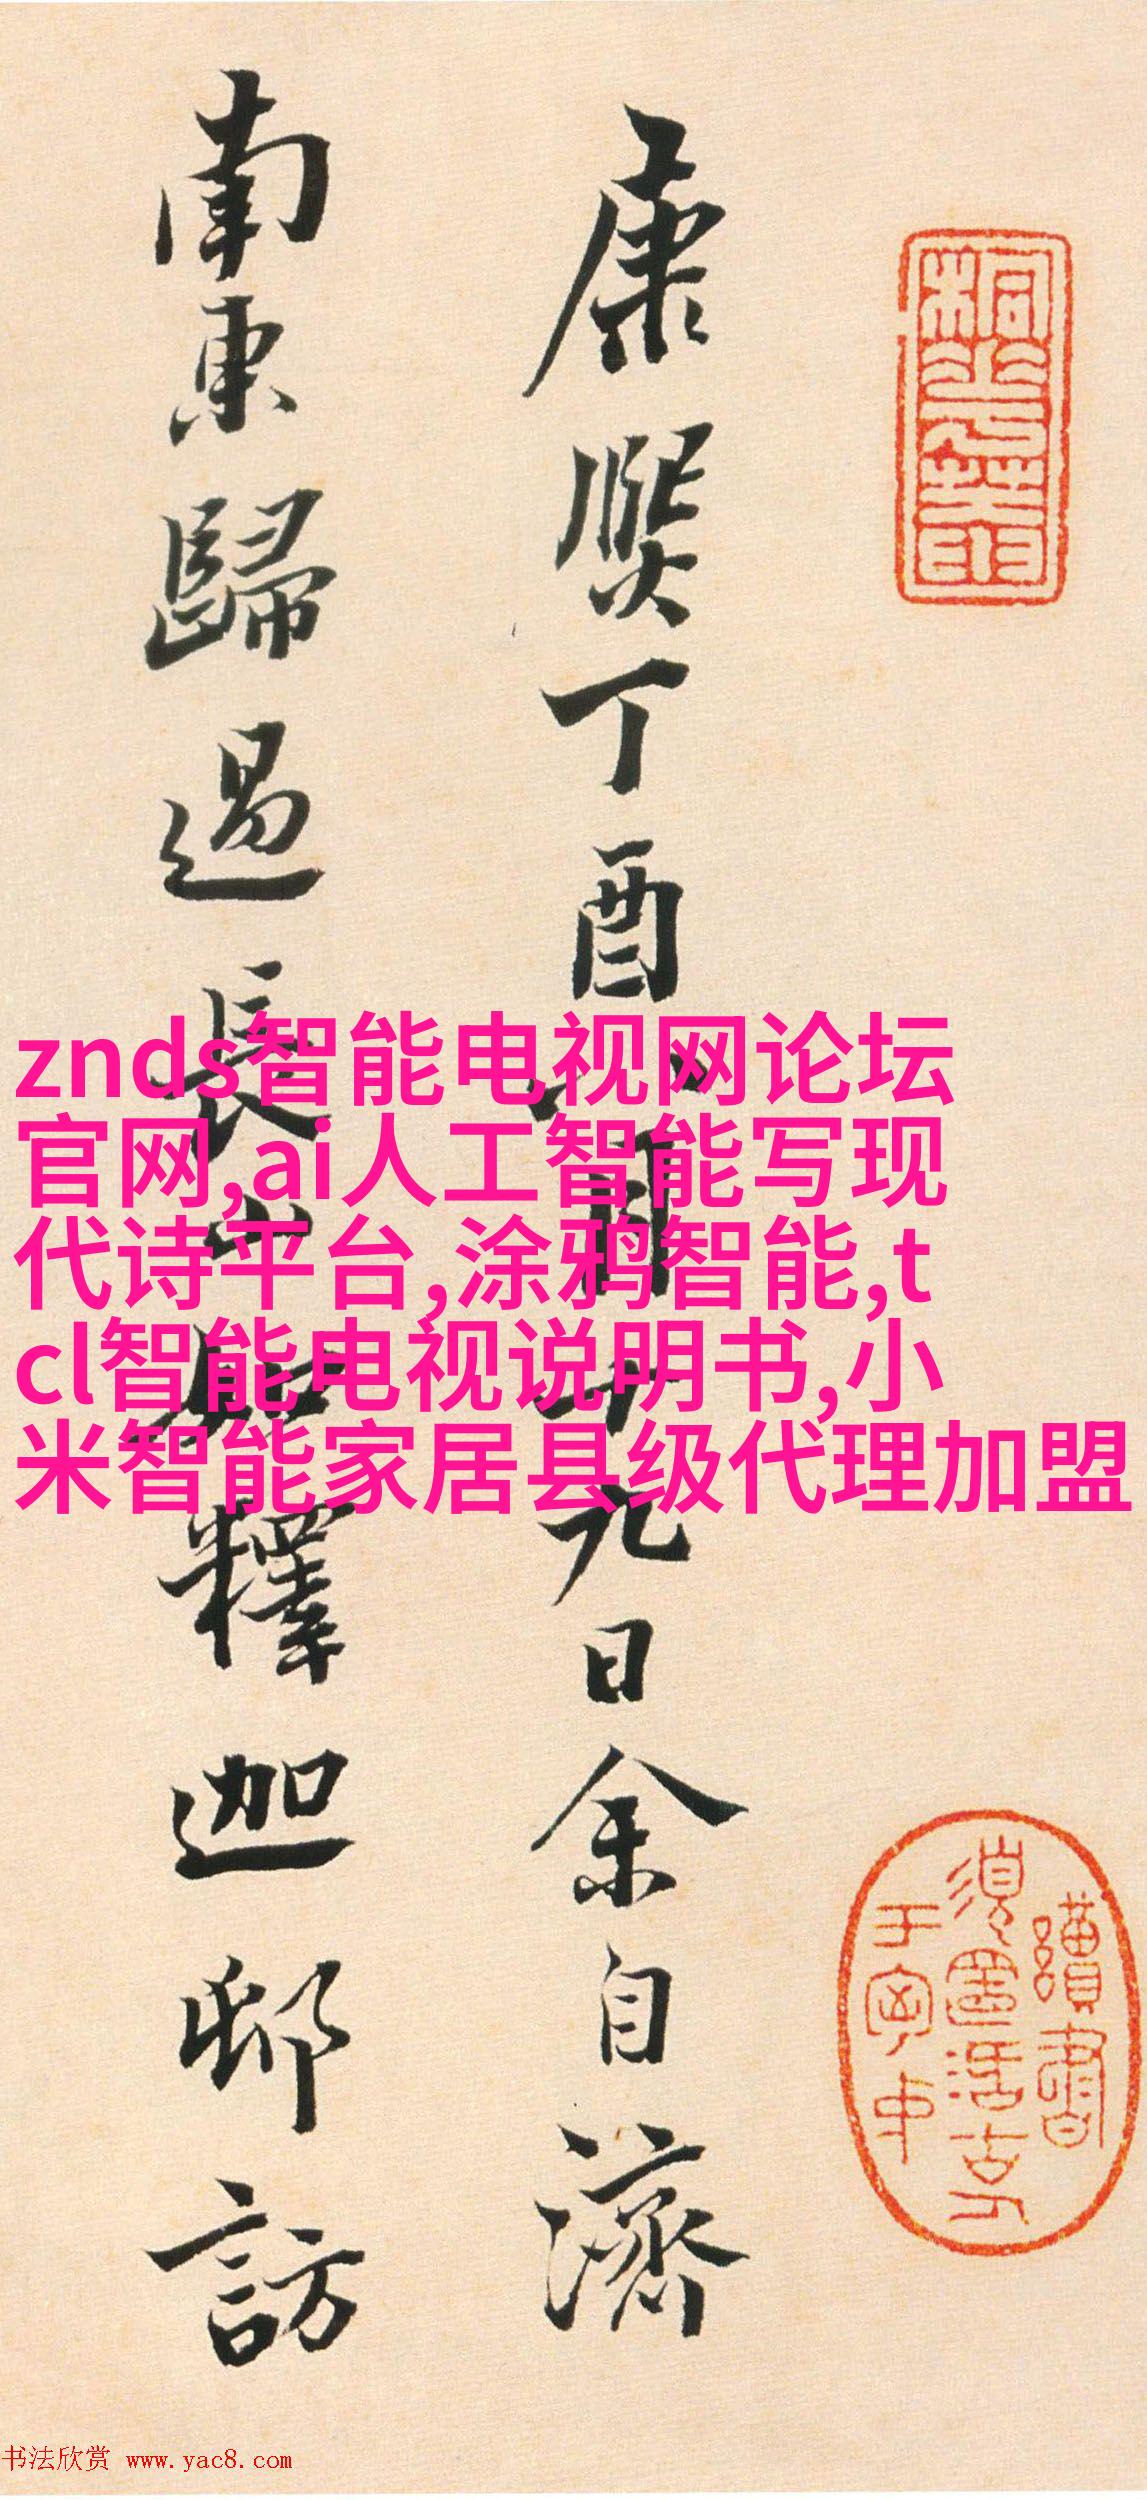 康熙丁酉月十九日余自濟
南東歸過長山釋迦邸訪
znds智能电视网论坛
官网,ai人工智能写现
代诗平台,涂鸦智能,t
cl智能电视说明书,小
米智能家居县级代理加盟
书法欣赏 www.yac8.com